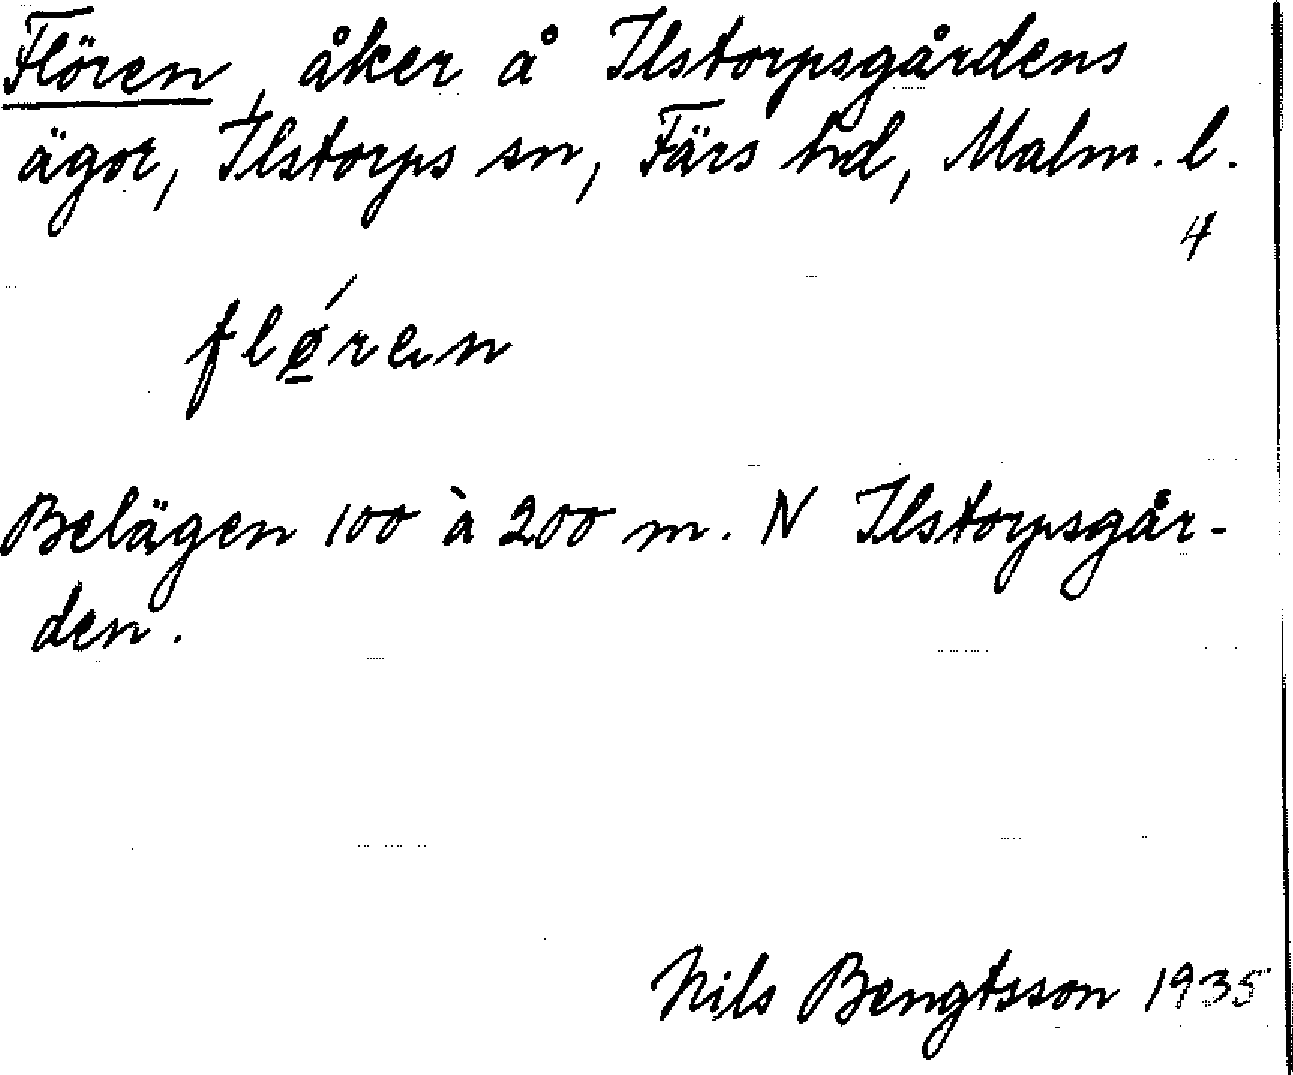 Flören, åker å Ilstorpsgårdens
ägor, Ilstorps sn, Färs hd, Malm. l.
4
flǿ̱ren
Belägen 100 à 200 m. N Ilstorpsgår-
den.
Nils Bengtsson 1935